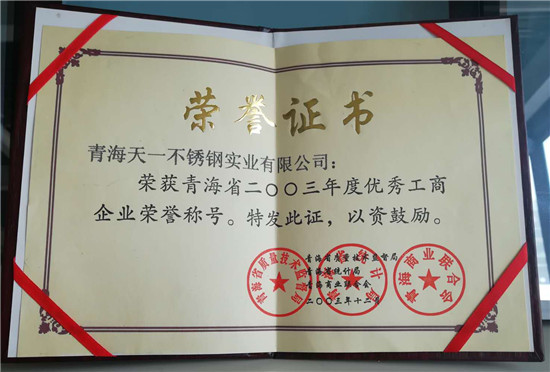 荣誉证书
青海天一不锈钢实业有限公司：
荣获青海省二〇〇三年度优秀工商
企业荣誉称号。特发此证，以资鼓励。
青海省质量技术监督局
青海省统计局
青海商业联合会
二〇〇三年十二月
青海省质量技术监督局
青海商业联合会